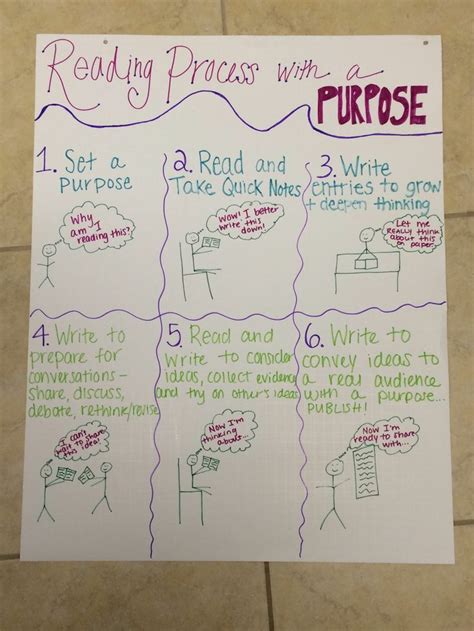 Reading Process with a
PURPOSE
1. Set a
purpose
Why
am I
reading this?
2. Read and
Take Quick Notes
Wow! I better
write this
down!
3. Write
entries to grow
+ deepen thinking
Let me
REALLY think
about this
on paper
4. Write to
prepare for
conversations-
share, discuss,
debate, rethink/revise
I can't
wait to share
this idea!
5. Read and
write to consider
ideas, collect evidence
and try on other's ideas
Now I'm
thinking
about...
6. Write to
convey ideas to
a real audience
with a purpose...
PUBLISH!
Now I'm
ready to share
with...